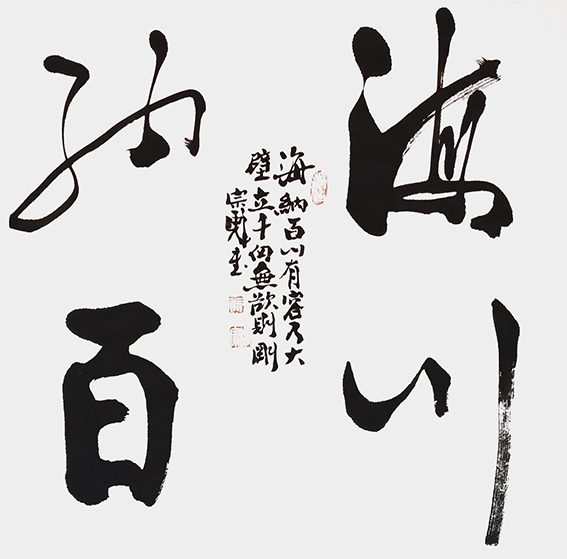 海納
百川
海納百川有容乃大
壁立千仞無欲則剛
宗勇書